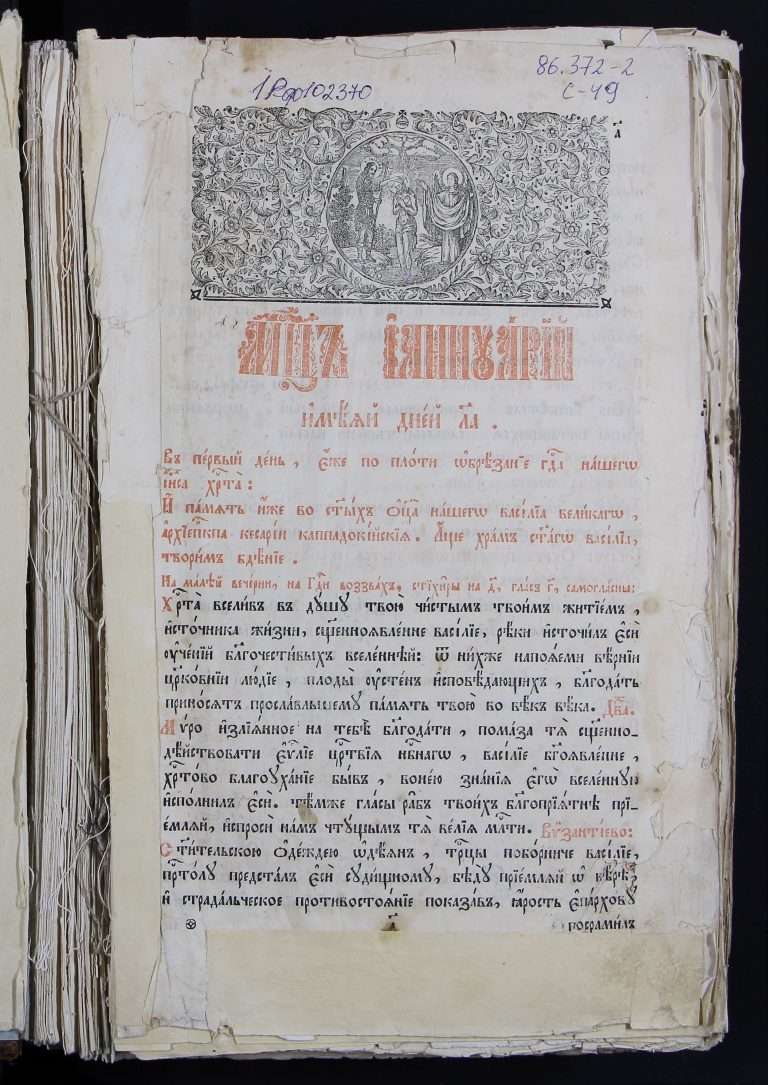 1Rф102370
86.372-2
С-49
а҃
Мц҃ъ і҆аннꙋа́рїй
и҆мѣ́ѧй дне́й л҃а .
Въ пе́рвый де́нь , є҆́же по пло́ти ѡ҆брѣ́занїе гдⷭ҇а на́шегѡ
і҆и҃са хрⷭ҇та̀ :
И҆ па́мѧть и҆́же во ст҃ы́хъ ѻ҆ц҃а̀ на́шегѡ васі́лїа вели́кагѡ ,
а҆рхїепⷭ҇кпа кесарі́и каппадокі́йскїѧ . А҆́ще хра́мъ ст҃а́гѡ васі́лїа,
твори́мъ бдѣ́нїе .
На ма́лѣй вече́рни, на Гдⷭ҇и воззва́хъ, стїхи̑ры на д҃, гла́съ г҃, самогла́сны:
Хрⷭ҇та̀ всели́въ въ дꙋ́шꙋ твою̀ чи́стымъ твои́мъ житїе́мъ ,
и҆сто́чника жи́зни, сщ҃енноѧвле́нне васі́лїе, рѣ́ки и҆сточи́лъ є҆сѝ
ᲂу҆че́нїй бл҃гочести́выхъ вселе́ннѣй: ѿ ни́хже напоѧ́еми вѣ́рнїи
цр҃ко́внїи лю́дїе , плоды̀ ᲂу҆сте́нъ и҆сповѣ́дающихъ , бл҃года́ть
прино́сѧтъ просла́вльшемꙋ па́мѧть твою̀ во вѣ́къ вѣ́ка. Два́.
Мѵ́ро и҆злїѧ́нное на тебѣ̀ бл҃года́ти , пома́за тѧ̀ сщ҃енно-
дѣ́йствовати є҆ѵⷢ҇лїе црⷭ҇твїѧ нбⷭ҇нагѡ , васі́лїе бг҃оѧвле́нне ,
хрⷭ҇то́во благоꙋха́нїе бы́въ , воне́ю зна́нїѧ є҆гѡ̀ вселе́ннꙋю
и҆спо́лнилъ є҆сѝ. тѣ́мже гла́сы ра̑бъ твои́хъ бл҃гопрїѧ́тнѣ прї-
е́млѧй, и҆спросѝ на́мъ чтꙋ́щымъ тѧ̀ ве́лїѧ млⷭ҇ти. Вѷза́нтїево:
Ст҃и́тельскою ѻ҆де́ждею ѡ҆дѣ́ѧнъ , трⷪ҇цы побо́рниче васі́лїе,
прⷭ҇то́лꙋ предста́лъ є҆сѝ сꙋди́щномꙋ, бѣ́дꙋ прїе́млѧй ѡ҆ вѣ́рѣ,
и҆ страда́льческое противостоѧ́нїе показа́въ, ꙗ҆́рость є҆па́рховꙋ
а҃
посрами́лъ